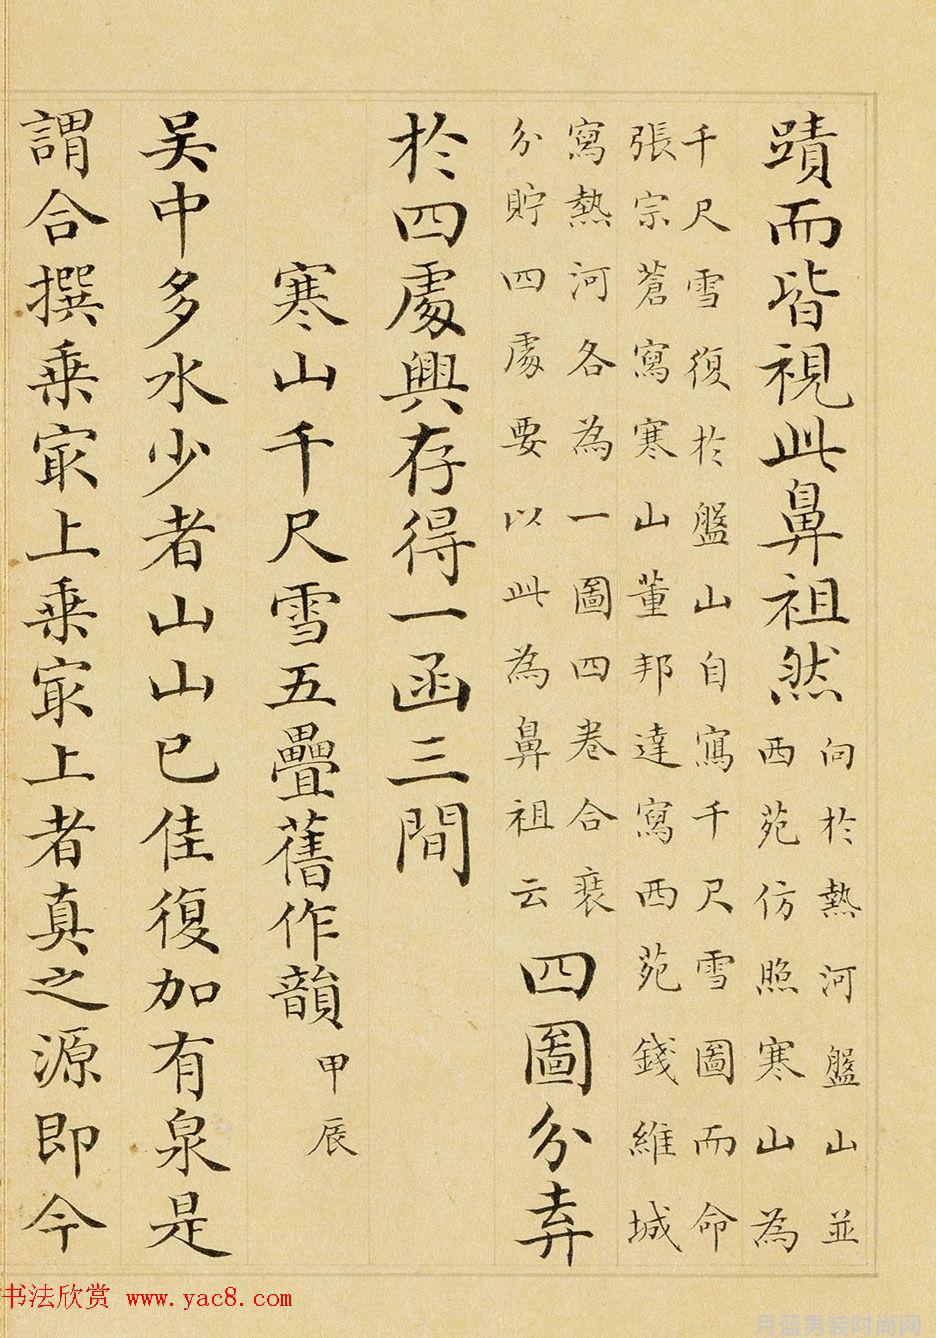 蹟而皆視此鼻祖然向於熱河盤山並
西苑仿照寒山為
千尺雪復於盤山自寫千尺雪圖而命
張宗蒼寫寒山董邦達寫西苑錢維城
寫熱河各為一圖四卷合裝
分貯四處要以此為鼻祖云
四圖分弆
於四處興存得一函三間
寒山千尺雪五疊舊作韻甲辰
吴中多水少者山山已佳復加有泉是
謂合撰乗㝡上乗㝡上者真之源即今
书法欣赏 www.yac8.com
月蓝男装时尚网